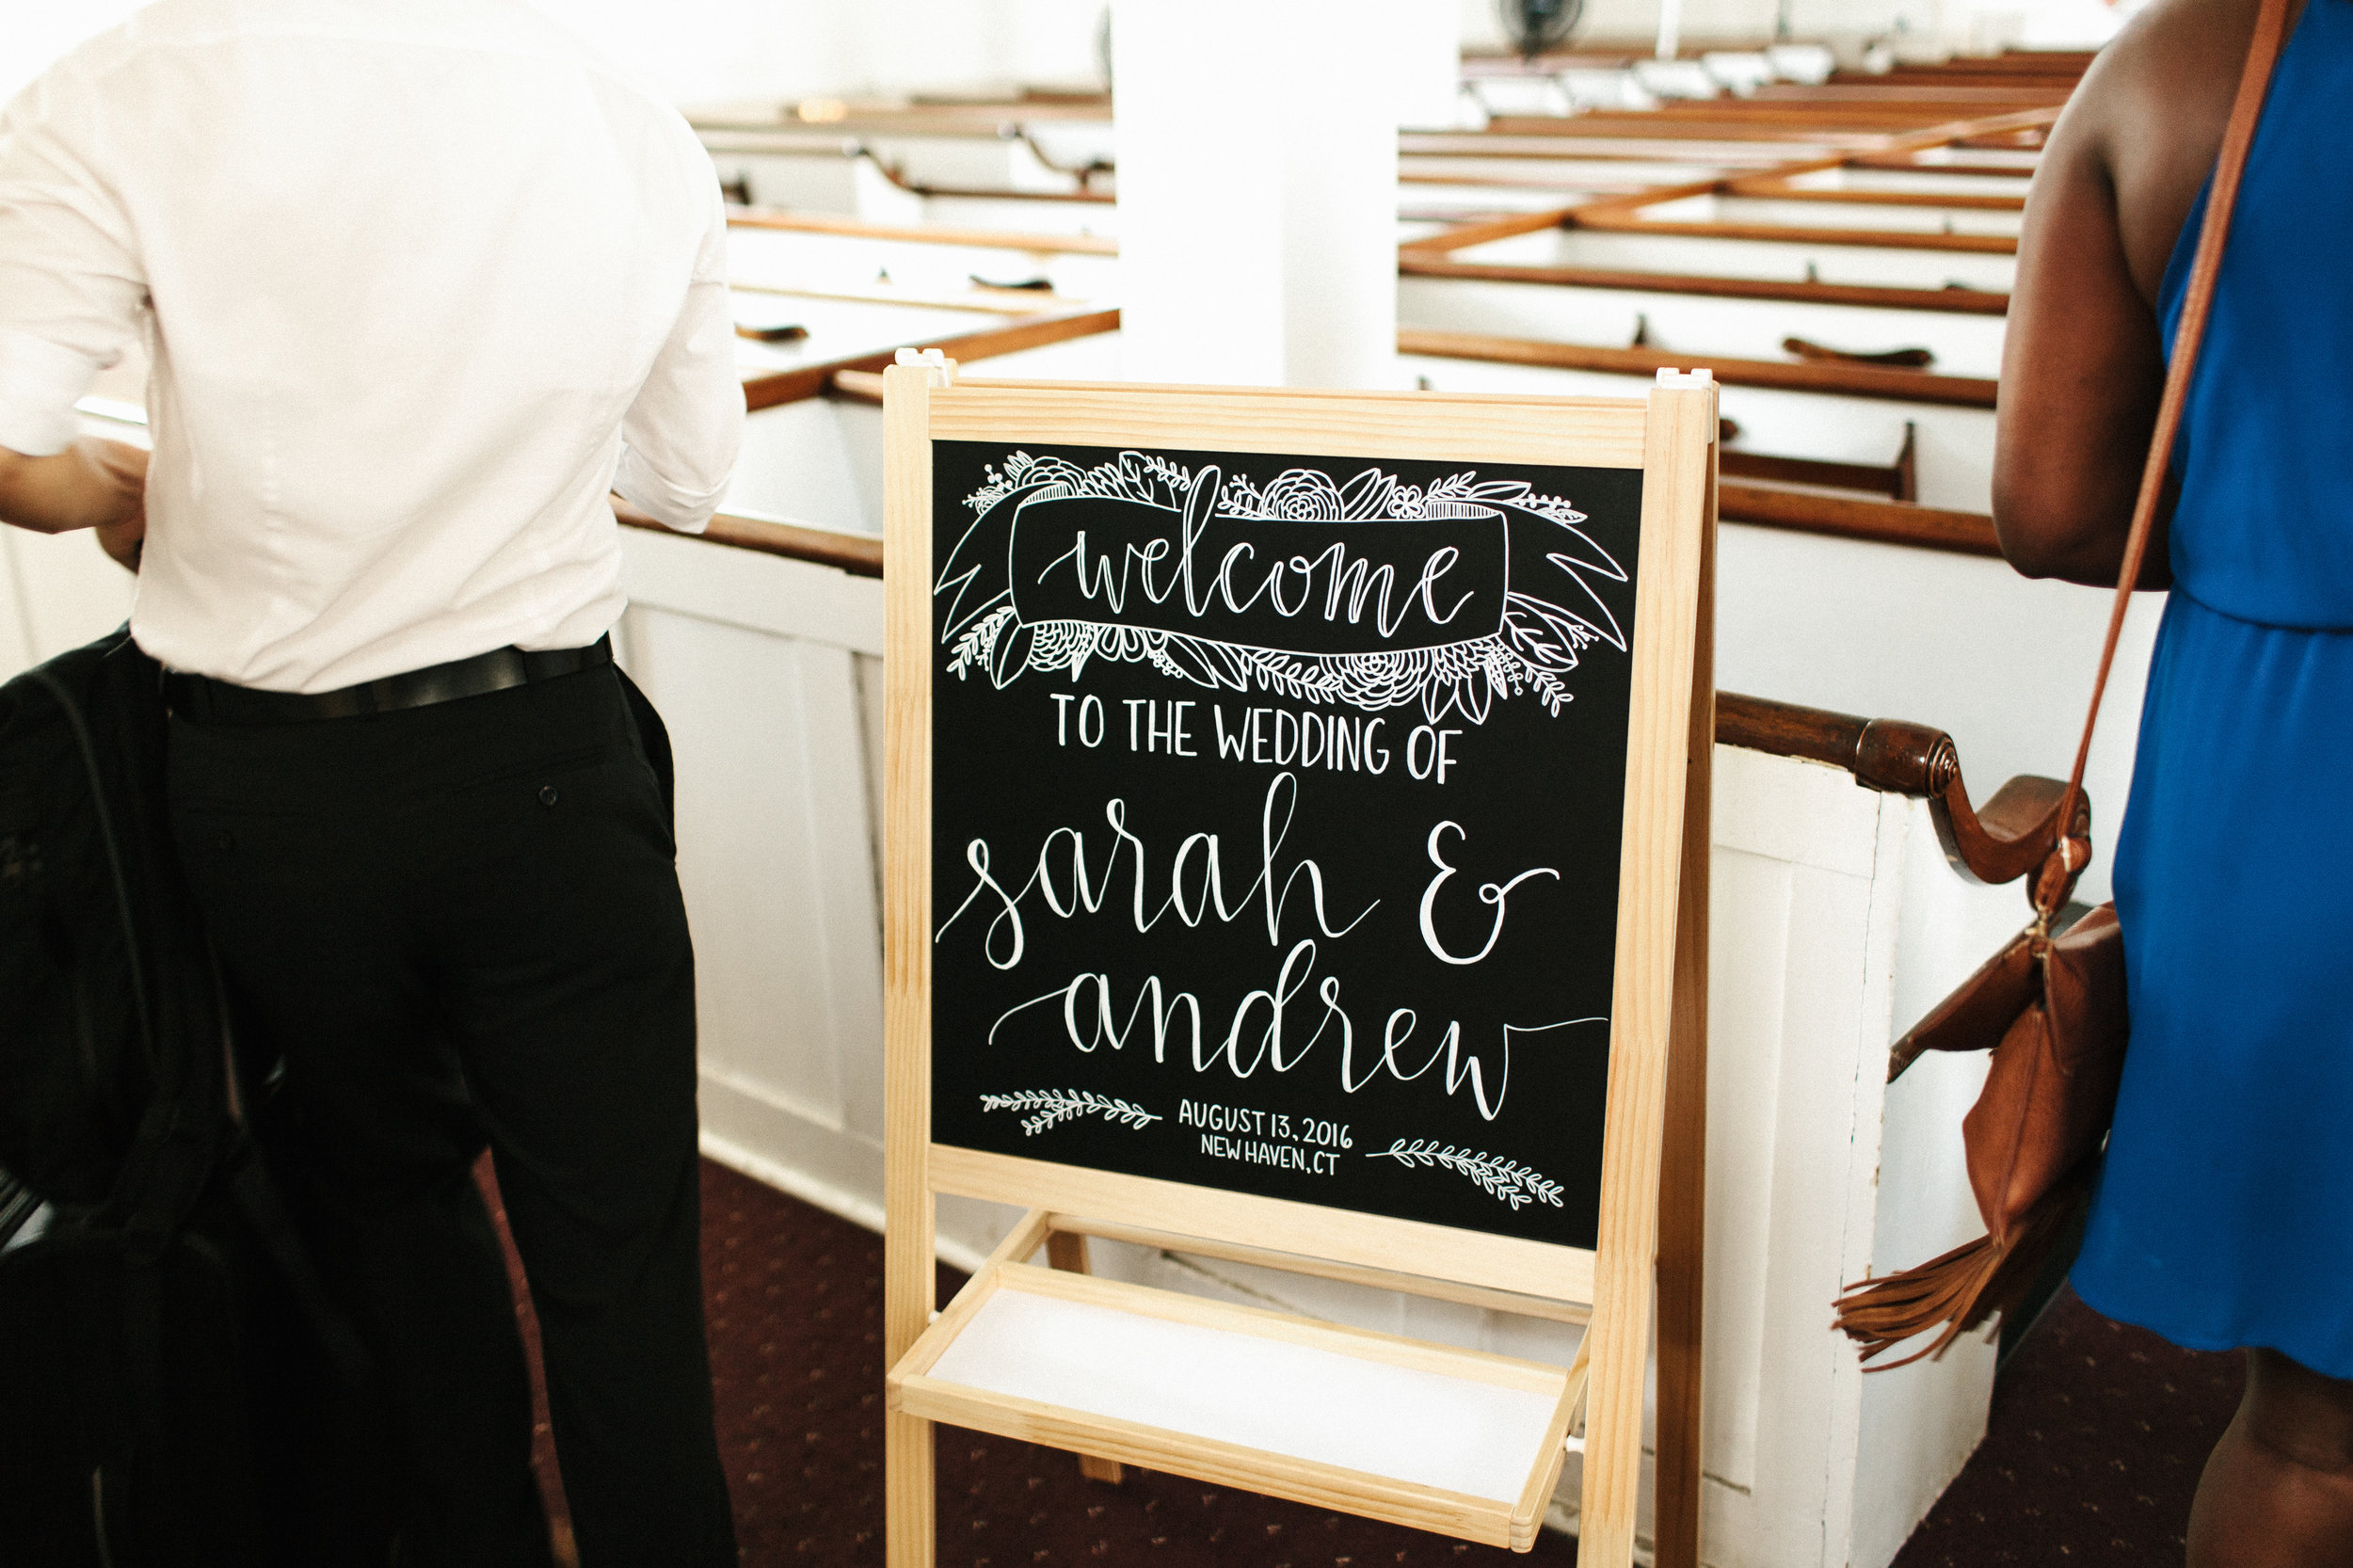 welcome
TO THE WEDDING OF
sarah &
andrew
AUGUST 13, 2016
NEW HAVEN, CT